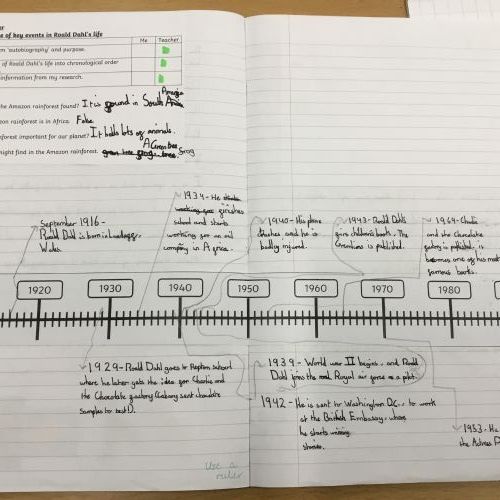 er
e of key events in Roald Dahl's life
Me Teacher
m 'autobiography' and purpose.
of Roald Dahl's life into chronological order
information from my research.
the Amazon rainforest found? It is found in South America
zon rainforest is in Africa. False
nforest important for our planet? It holds lots of animals.
might find in the Amazon rainforest. A Green tree frog
September 1916 -
Roald Dahl is born in Llandaff,
Wales.
1934 - He finishes
school and starts
working for an oil
company in Africa.
1940 - His plane
crashes and he is
badly injured.
1943 - Roald Dahl's
first children's book, The
Gremlins is published.
1964 - Charlie
and the Chocolate
factory is published, it
becomes one of his most
famous books.
1920 1930 1940 1950 1960 1970 1980
1929 - Roald Dahl goes to Repton School
where he later gets the idea for Charlie and
the Chocolate factory (Cadbury sent chocolate
samples to test).
1939 - World war II begins, and Roald
Dahl joins the Royal air force as a pilot.
1942 - He is sent to Washington D.C., to work
at the British Embassy, where
he starts writing
stories.
1953 - He
the Actress P
Use a
ruler